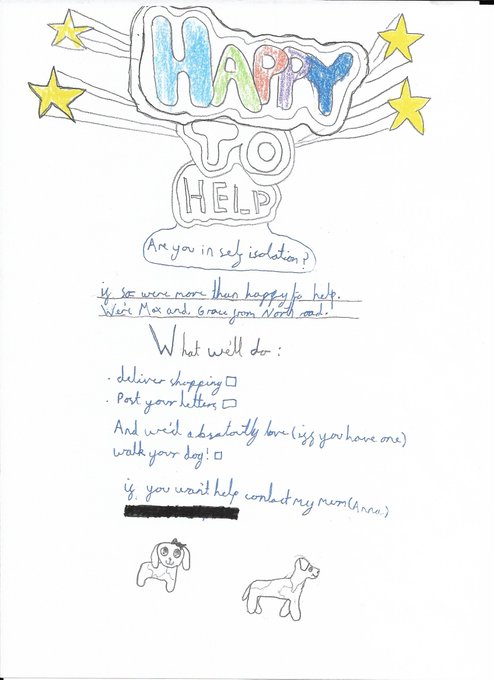 HAPPY
TO
HELP
Are you in self isolation?
if so were more than happy to help.
We're Max and Grace from North road.
What we'll do:
· deliver shopping
· Post your letters
And we'd absaloutly love (iff you have one)
walk your dog!
if you want help contact my mum (Anna)